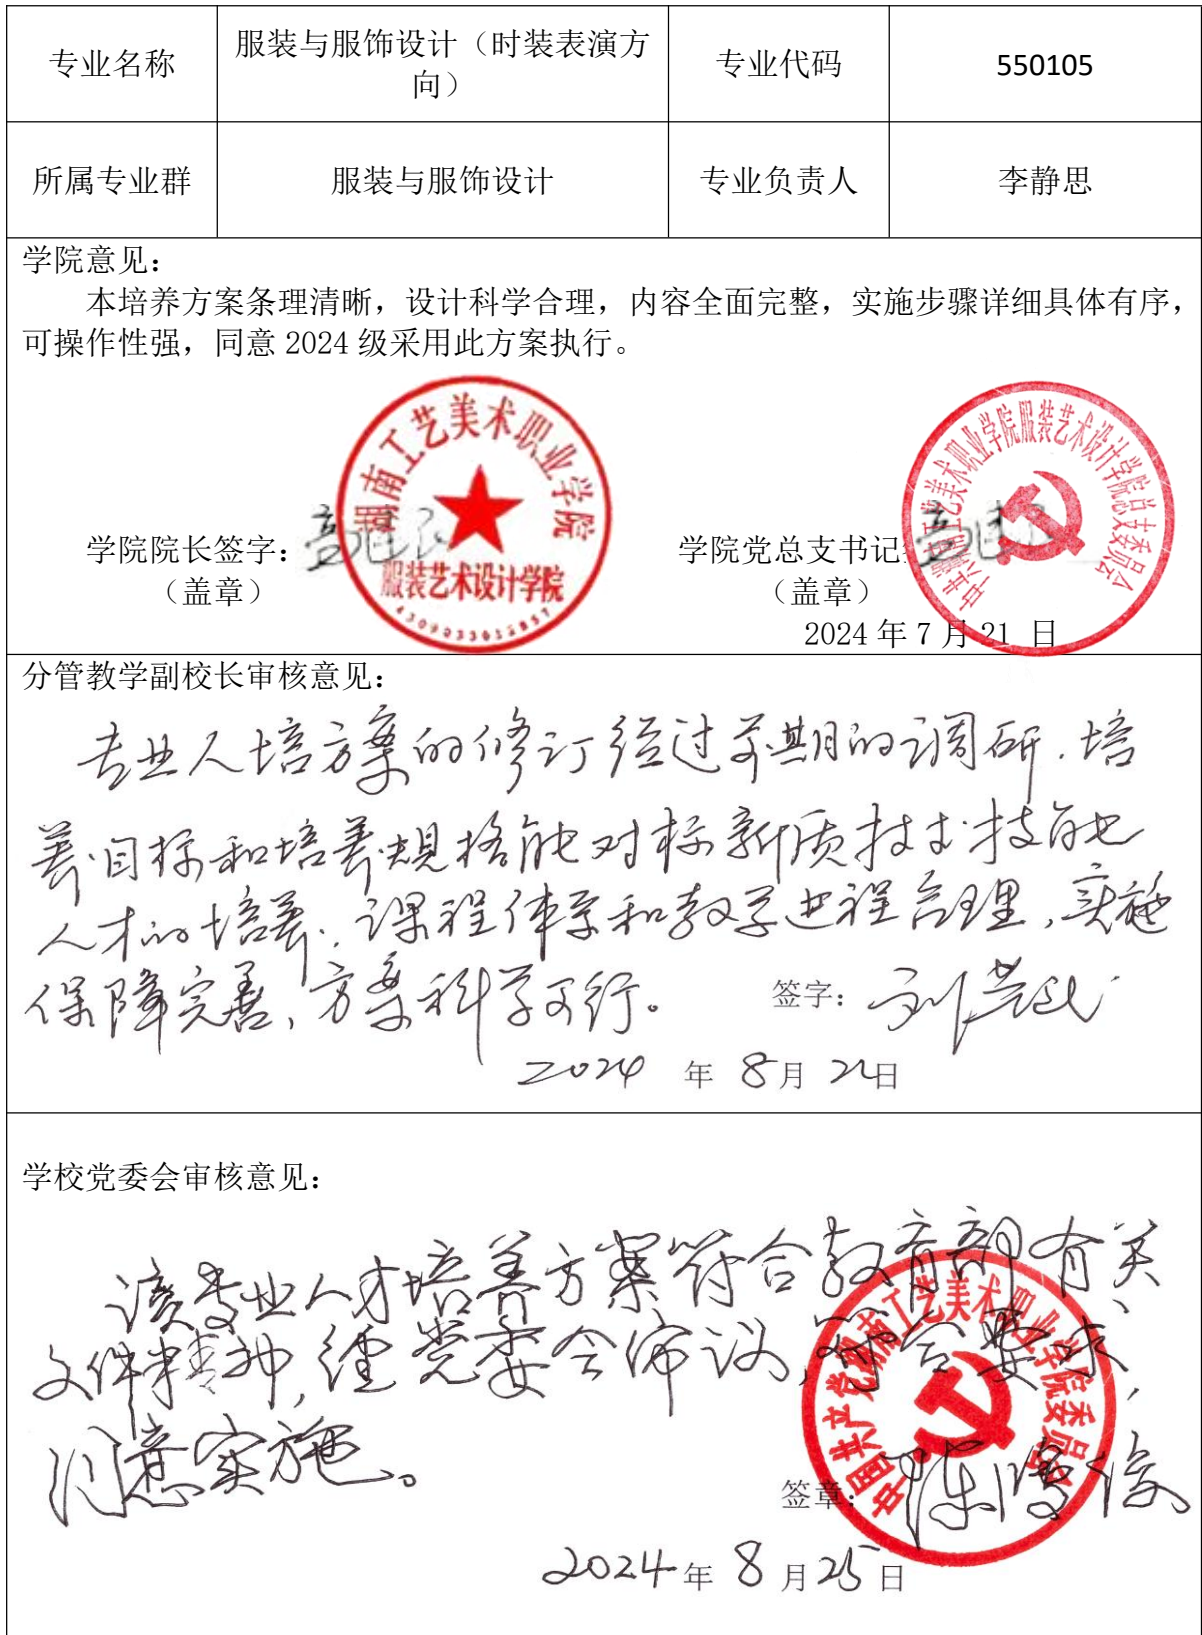 专业名称
服装与服饰设计（时装表演方
向）
专业代码
550105
所属专业群
服装与服饰设计
专业负责人
李静思
学院意见：
本培养方案条理清晰，设计科学合理，内容全面完整，实施步骤详细具体有序，
可操作性强，同意 2024 级采用此方案执行。
湖南工艺美术职业学院
服装艺术设计学院
中共湖南工艺美术职业学院服装艺术设计学院总支委员会
学院院长签字：
学院党总支书记
（盖章）
（盖章）
2024 年 7 月 21 日
分管教学副校长审核意见：
专业人培方案的修订经过前期的调研，培
养目标和培养规格能对标新质技术技能
人才的培养，课程体系和教学进程合理，实施
保障完善，方案科学可行。
签字：
2024 年 8 月 22 日
学校党委会审核意见：
该专业人才培养方案符合教育部有关
文件精神，经党委会审议，符合要求，
同意实施。
中国共产党湖南工艺美术职业学院委员会
签章：
2024 年 8 月 25 日